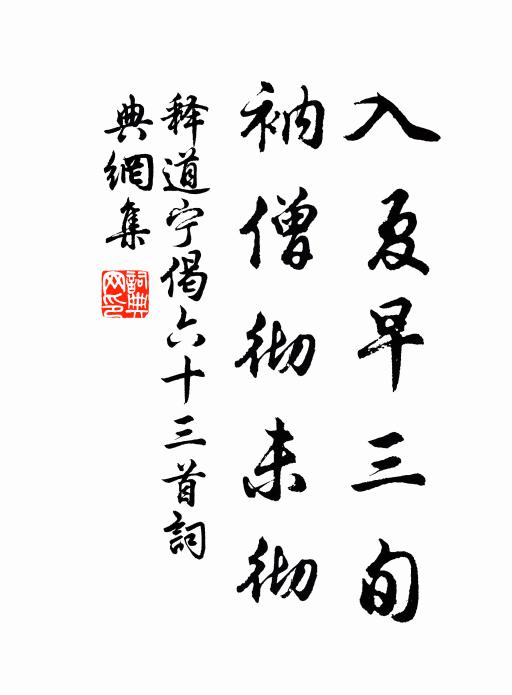 入夏早三旬
衲僧彻未彻
释道宁偈六十三首詞
典網集
詞典网印